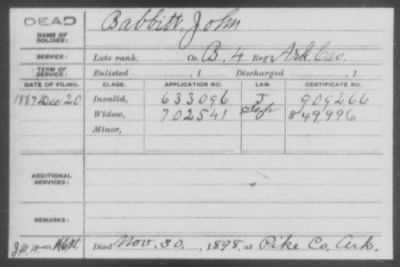 DEAD
NAME OF SOLDIER: Babbitt, John
SERVICE: Late rank, Co. B, 4 Reg't Ark. Cav.
TERM OF SERVICE: Enlisted , 1 Discharged , 1
DATE OF FILING. CLASS. APPLICATION NO. LAW. CERTIFICATE NO.
1887 Dec 20 Invalid, 633096 J 909266
Widow, 702541 849,996
Minor,
ADDITIONAL SERVICES:
REMARKS:
Died Nov. 30, 1898, at Pike Co. Ark.